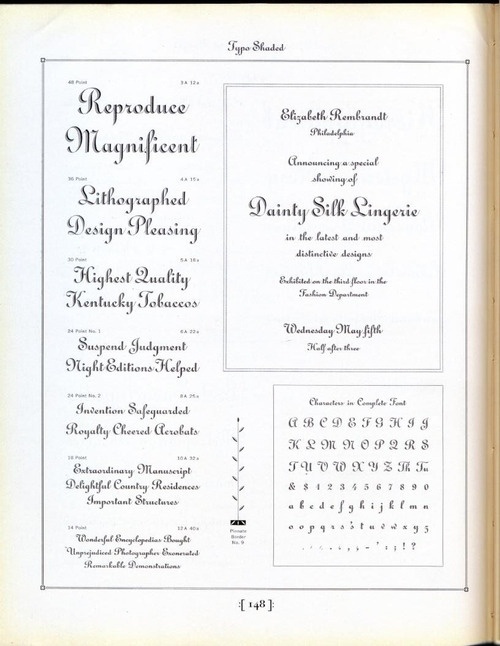 Typo Shaded
48 Point 3 A 12 a
Reproduce
Magnificent
36 Point 4 A 15 a
Lithographed
Design Pleasing
30 Point 5 A 18 a
Highest Quality
Kentucky Tobaccos
24 Point No. 1 6 A 22 a
Suspend Judgment
Night Editions Helped
24 Point No. 2 8 A 25 a
Invention Safeguarded
Royalty Cheered Acrobats
18 Point 10 A 32 a
Extraordinary Manuscript
Delightful Country Residences
Important Structures
14 Point 12 A 40 a
Wonderful Encyclopedias Bought
Unprejudiced Photographer Exonerated
Remarkable Demonstrations
Elizabeth Rembrandt
Philadelphia
Announcing a special
showing of
Dainty Silk Lingerie
in the latest and most
distinctive designs
Exhibited on the third floor in the
Fashion Department
Wednesday May fifth
Half after three
Pinnate
Border
No. 9
Characters in Complete Font
A B C D E F G H I J
K L M N O P Q R S
T U V W X Y Z Th Tu
& $ 1 2 3 4 5 6 7 8 9 0
a b c d e f g h i j k l m n
o p q r s t u v w x y z
. , - ' : ; ! ?
:[ 148 ]: